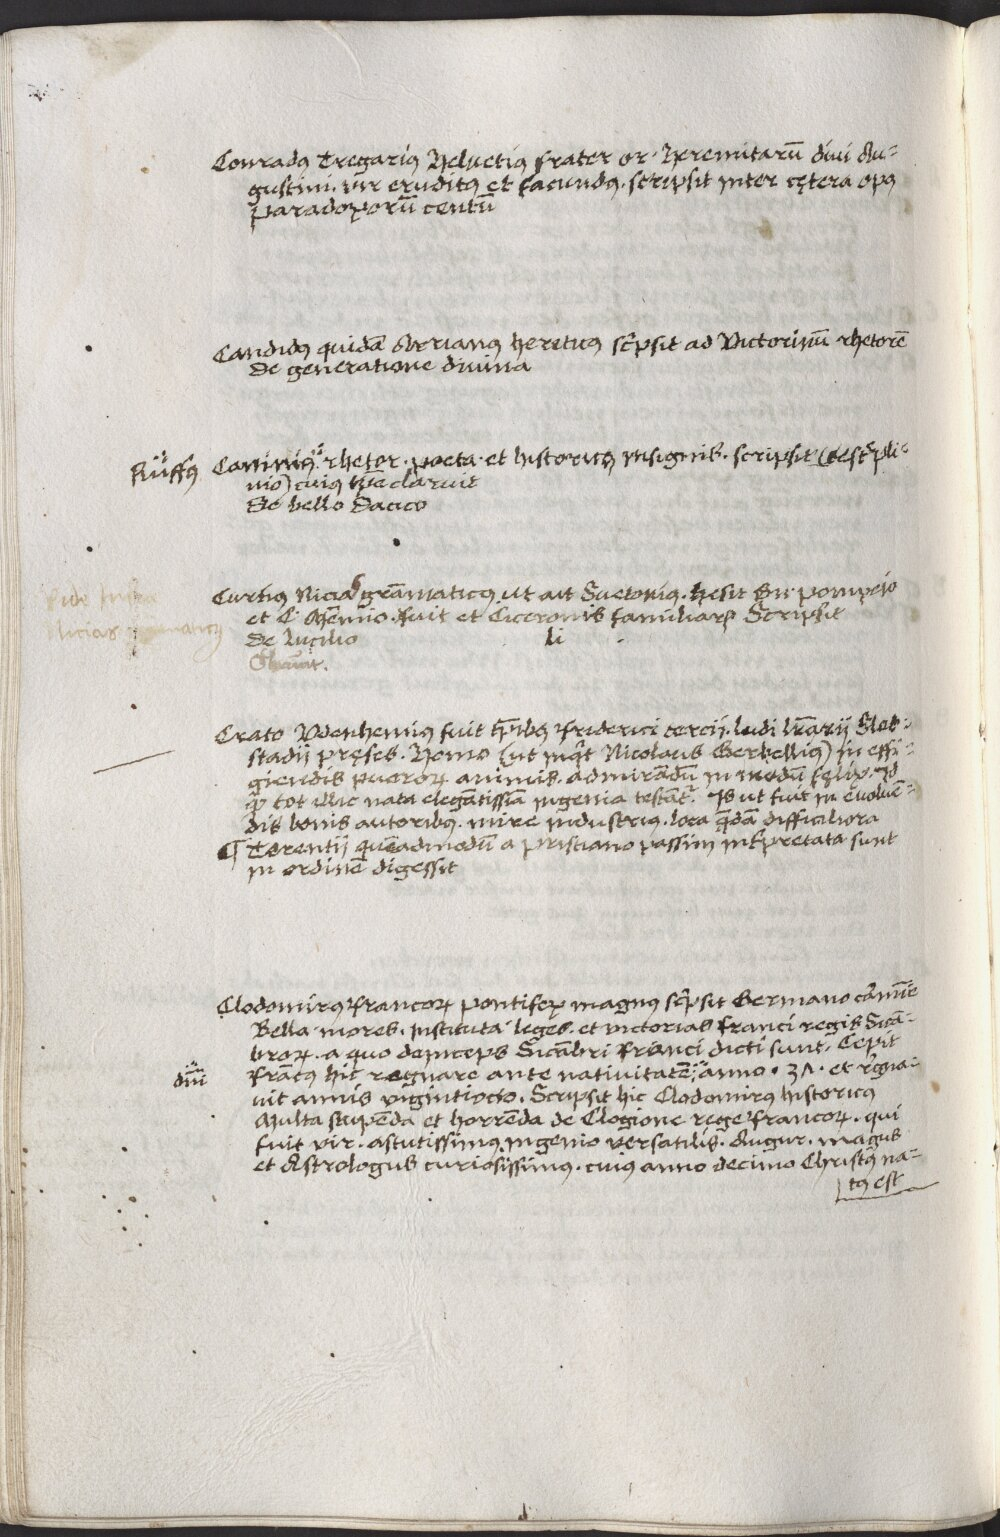 Conradꝰ Tregariꝰ Helvetiꝰ frater or. Heremitarū divi Au-
gustini. vir eruditꝰ et facundꝰ. scripsit inter cętera opꝰ
Paradoxorū centū
Candidꝰ quidā Arrianꝰ hereticꝰ scr̄psit ad Victorinū rhetorē
De generatione divina
Ruffꝰ
Caniniꝰ rhetor. poeta. et historicꝰ insignis. scripsit (teste pli-
nio) cuiꝰ tp̄e claruit
De bello Dacico
Vide infra
Nicias
Curtiꝰ Nicias gram̄aticꝰ ut ait Suetoniꝰ. hesit Gn. Pompeio
et C. Mem̄io. fuit et Ciceronis familiaris Scripsit
De Lucilio li
Crato Vdenhemiꝰ fuit tp̄ribꝰ Friderici tercij. ludi lr̄arij Slet-
stadij pręses. Homo (ut inq̄t Nicolaus Gerbelliꝰ) in effi-
giendis pueroꝝ animis. admirādū in modū felix. Id
q̄ tot illic nata elegātissīa ingenia testāt᷑. Is ut fuit in evolvē-
dis bonis autoribꝰ. mire industrius. loca q̄dā difficiliora
Terentij quēadmodū a Prisciano passim inꝑpretata sunt
in ordinē digessit
Clodomirꝰ Francoꝝ pontifex magnꝰ scr̄psit Germano carmīe
Bella. mores. Instituta. leges. et victorias Franci regis Sicā-
broꝝ. a quo deinceps Sicābri Franci dicti sunt. Cepit
dn̄i
Francꝰ hic regnare ante nativitatē anno. 37. et regna-
vit annis vigintiocto. Scripsit hic Clodomirꝰ historicꝰ
Multa stupēda et horrēda de Clogione rege Francoꝝ. qui
fuit vir. astutissimꝰ ingenio versatilis. Augur. magus
et Astrologus curiosissimus. cuiꝰ anno decimo Christꝰ na-
tꝰ est